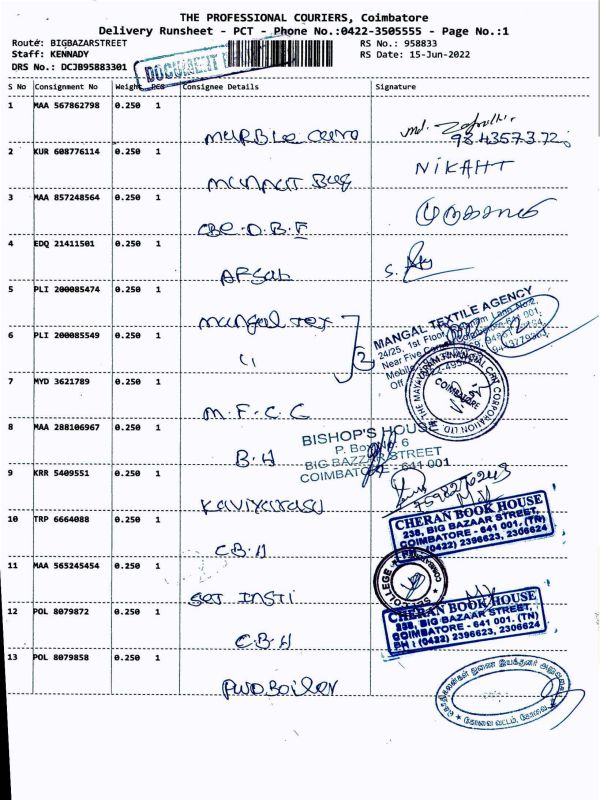 THE PROFESSIONAL COURIERS, Coimbatore
Delivery Runsheet - PCT - Phone No.:0422-3505555 - Page No.:1
Route: BIGBAZARSTREET RS No.: 958833
Staff: KENNADY RS Date: 15-Jun-2022
DRS No.: DCJB95883301
DOCUMENT
S No Consignment No Weight PCS Consignee Details Signature
1 MAA 567862798 0.250 1
2 KUR 608776114 0.250 1 NIKAHT
3 MAA 857248564 0.250 1 CBE.D.B.F
4 EDQ 21411501 0.250 1 AFSAL
5 PLI 200085474 0.250 1 Mangal Tex
6 PLI 200085549 0.250 1 11 2
MANGAL TEXTILE AGENCY
24/25, 1st Floor
Near Five
7 MYD 3621789 0.250 1 M.F.C.C
COIMBATORE
8 MAA 288106967 0.250 1 B.H
BISHOP'S HOUSE
P. Box No. 6
BIG BAZZAR STREET
COIMBATORE - 641 001
9 KRR 5409551 0.250 1 Kaviyarasu
10 TRP 6664088 0.250 1 C.B.H
CHERAN BOOK HOUSE
238, BIG BAZAAR STREET,
COIMBATORE - 641 001. (TN)
PH : (0422) 2396623, 2306624
11 MAA 565245454 0.250 1 INSTI
COLLEGE
12 POL 8079872 0.250 1 C.B.H
CHERAN BOOK HOUSE
238, BIG BAZAAR STREET,
COIMBATORE - 641 001. (TN)
PH : (0422) 2396623, 2306624
13 POL 8079858 0.250 1 PWD Boiler